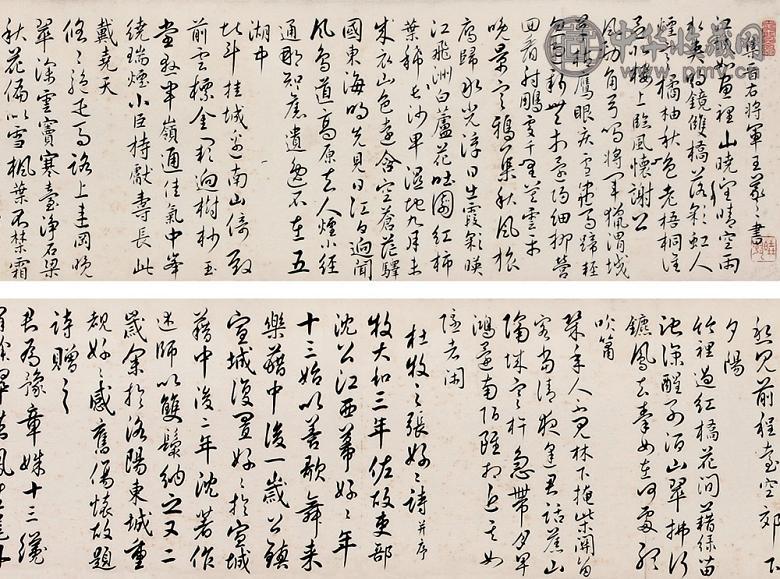 集晉右將軍王羲之書
江城如畫裡山曉望晴空雨
水夾明鏡雙橋落彩虹人
煙寒橘柚秋色老梧桐誰
念北樓上臨風懷謝公
風勁角弓鳴將軍獵渭城
草枯鷹眼疾雪盡馬蹄輕
忽過新豐市還歸細柳營
回看射鵰處千里暮雲平
晚景寒鴉集秋風旅
鴈歸水光浮日出霞彩映
江飛洲白蘆花吐園紅柿
葉稀長沙卑濕地九月未
成衣山色遠含空蒼茫澤
國東海明先見日江白迥聞
風鳥道高原去人煙小徑
通那知舊遺逸不在五
湖中
北斗挂城邊南山倚殿
前雲標金闕迥樹杪玉
堂懸半嶺通佳氣中峯
繞瑞煙小臣持獻壽長此
戴堯天
路上重岡晚
翠深雲竇寒臺淨石梁
秋花偏似雪楓葉不禁霜
愁見前程遠空郊下
夕陽
竹裡過紅橋花間藉綠苗
池深醒子酒山翠拂行
鑣鳳去秦女在何處聽
吹簫
林下掩柴關留
客當清夜逢君話舊山
隔城寒杵急帶月早
鴻還南陌雖相近其如
隱者閑
杜牧之張好好詩并序
牧大和三年佐故吏部
沈公江西幕好好年
十三始以善歌舞來
樂籍中後一歲公鎮
宣城復置好好於宣城
籍中後二年沈著作
述師以雙鬟納之又二
歲余於洛陽東城重
覩好好感舊傷懷故題
詩贈之
君為豫章姝十三纔
中华收藏网
www.pmv.cn